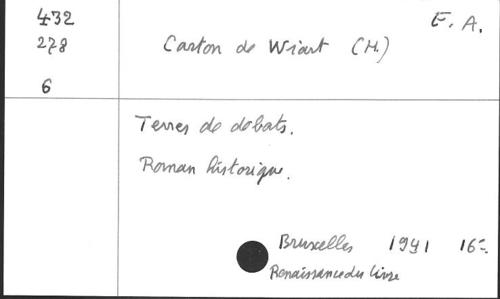 432
E. A.
278
Carton de Wiart (H.)
6
Terres de débats.
Roman historique.
Bruxelles 1941 16º
Renaissance du livre